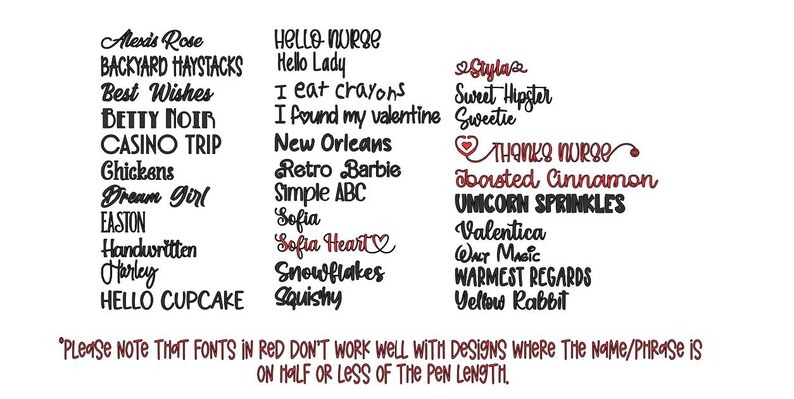 Alexis Rose
BACKYARD HAYSTACKS
Best Wishes
BETTY NOIR
CASINO TRIP
Chickens
Dream Girl
EASTON
Handwritten
Harley
HELLO CUPCAKE
HELLO NURSE
Hello Lady
I eat crayons
I found my valentine
New Orleans
Retro Barbie
Simple ABC
Sofia
Sofia Heart
Snowflakes
Squishy
Styla
Sweet Hipster
Sweetie
THANKS NURSE
Toasted Cinnamon
UNICORN SPRINKLES
Valentica
Walt Magic
WARMEST REGARDS
Yellow Rabbit
*PLEASE NOTE THAT FONTS IN RED DON'T WORK WELL WITH DESIGNS WHERE THE NAME/PHRASE IS
ON HALF OR LESS OF THE PEN LENGTH.